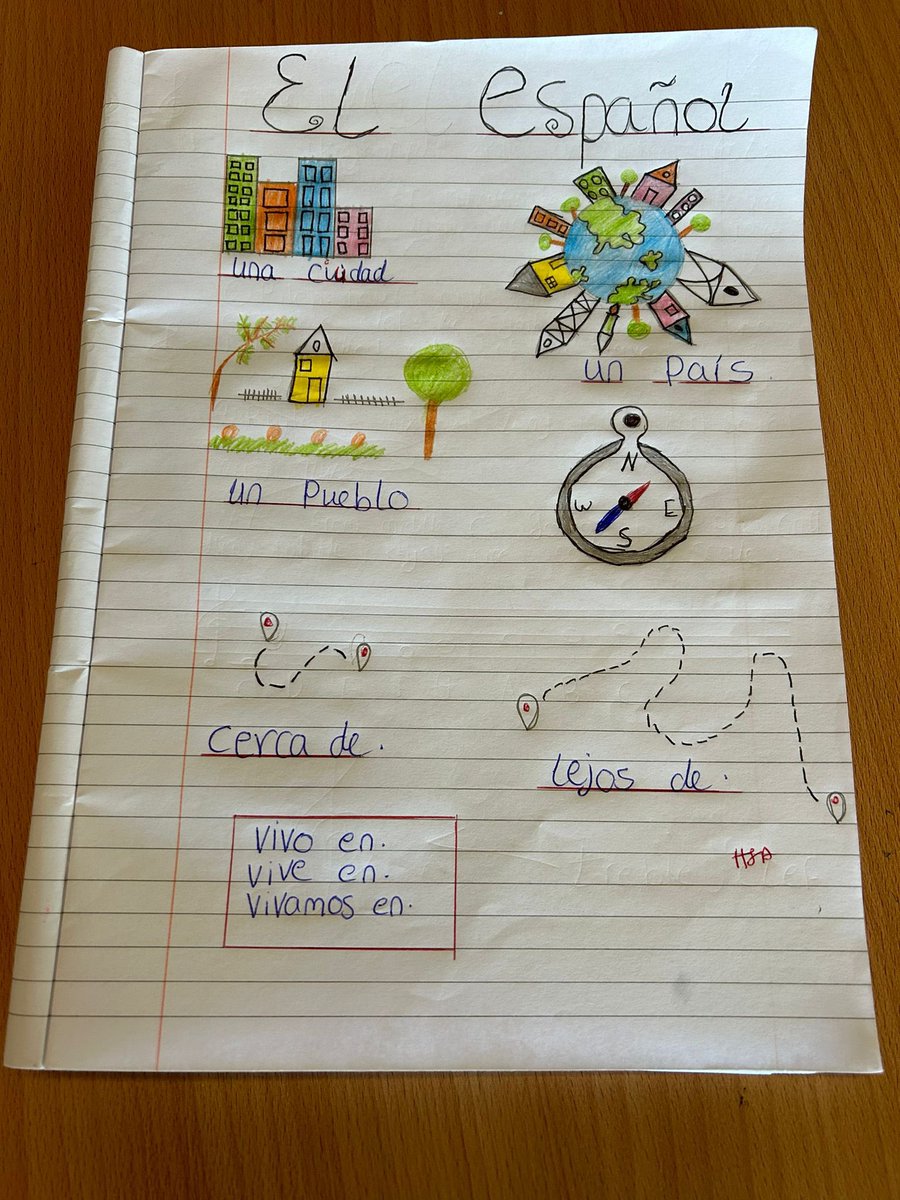 El español
una ciudad
un país.
un Pueblo
N
W E
S
cerca de.
lejos de.
vivo en.
vive en.
vivamos en.